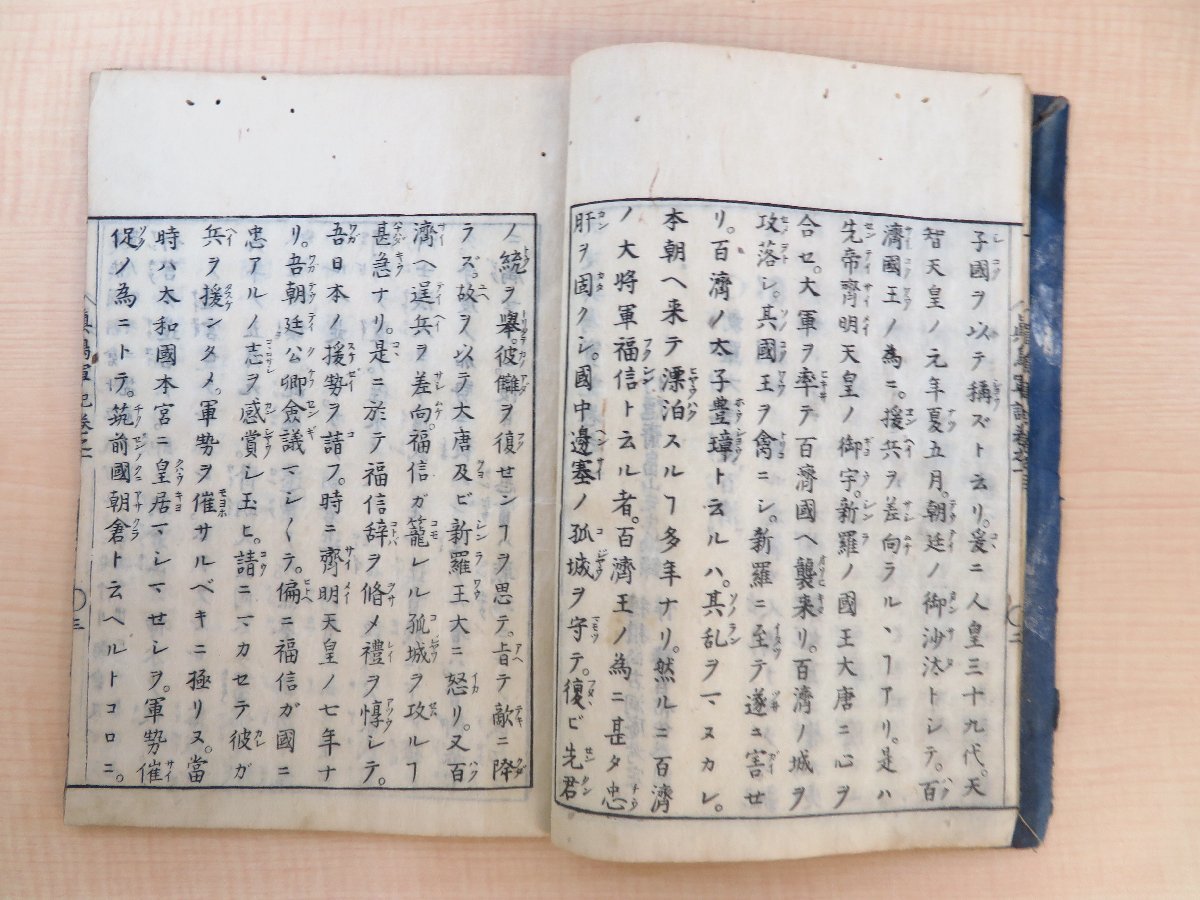 子國ヲ以テ稱ズト云リ。爰ニ人皇三十九代。天
智天皇ノ元年夏五月。朝廷ノ御沙汰トシテ。百
濟國王ノ為ニ。援兵ヲ差向ラルヽヿアリ。是ハ
先帝齊明天皇ノ御宇。新羅ノ國王大唐ニ心ヲ
合セ。大軍ヲ率テ百濟國ヘ襲来リ。百濟ノ城ヲ
攻落シ。其國王ヲ禽ニシ。新羅ニ至テ遂ニ害セ
リ。百濟ノ太子豊璋ト云ルハ。其乱ヲマヌカレ。
本朝ヘ来テ漂泊スルヿ多年ナリ。然ルニ百濟
ノ大将軍福信ト云ル者。百濟王ノ為ニ甚タ忠
肝ヲ固クシ。國中邊塞ノ孤城ヲ守テ。復ビ先君
ノ統ヲ舉。彼讎ヲ復センヿヲ思テ。肯テ敵ニ降
ラズ。故ヲ以テ大唐及ビ新羅王大ニ怒リ。又百
濟ヘ逞兵ヲ差向。福信ガ籠レル孤城ヲ攻ルヿ
甚急ナリ。是ニ於テ福信辞ヲ脩メ禮ヲ惇シテ。
吾日本ノ援勢ヲ請フ。時ニ齊明天皇ノ七年ナ
リ。吾朝廷公卿僉議マシ〱テ。偏ニ福信ガ國ニ
忠アルノ志ヲ感賞シ玉ヒ。請ニマカセテ彼ガ
兵ヲ援ンタメ。軍勢ヲ催サルベキニ極リヌ。當
時ハ太和國本宮ニ皇居マシマセシヲ。軍勢催
促ノ為ニトテ。筑前國朝倉ト云ヘルトコロニ。
軍記巻之一
〇三
〇二